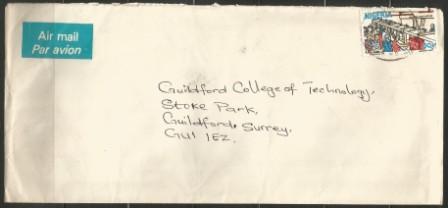 Air mail
Par avion
Guildford College of Technology,
Stoke Park,
Guildford, Surrey,
GU1 1EZ.